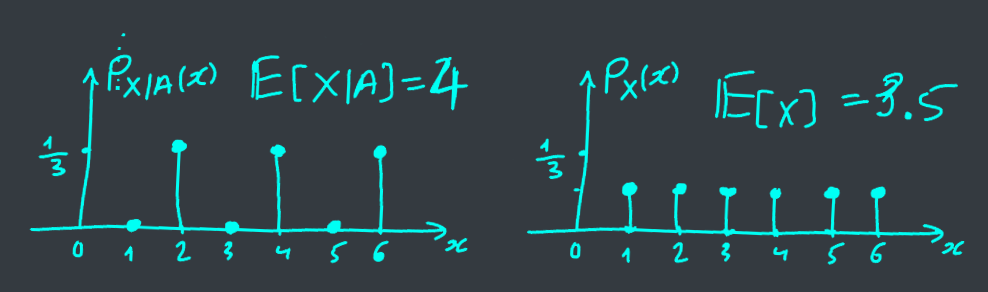 P_{X|A}(x) 𝔼[X|A]=4
1/3
0 1 2 3 4 5 6 x
P_X(x) 𝔼[X] = 3.5
1/3
0 1 2 3 4 5 6 x